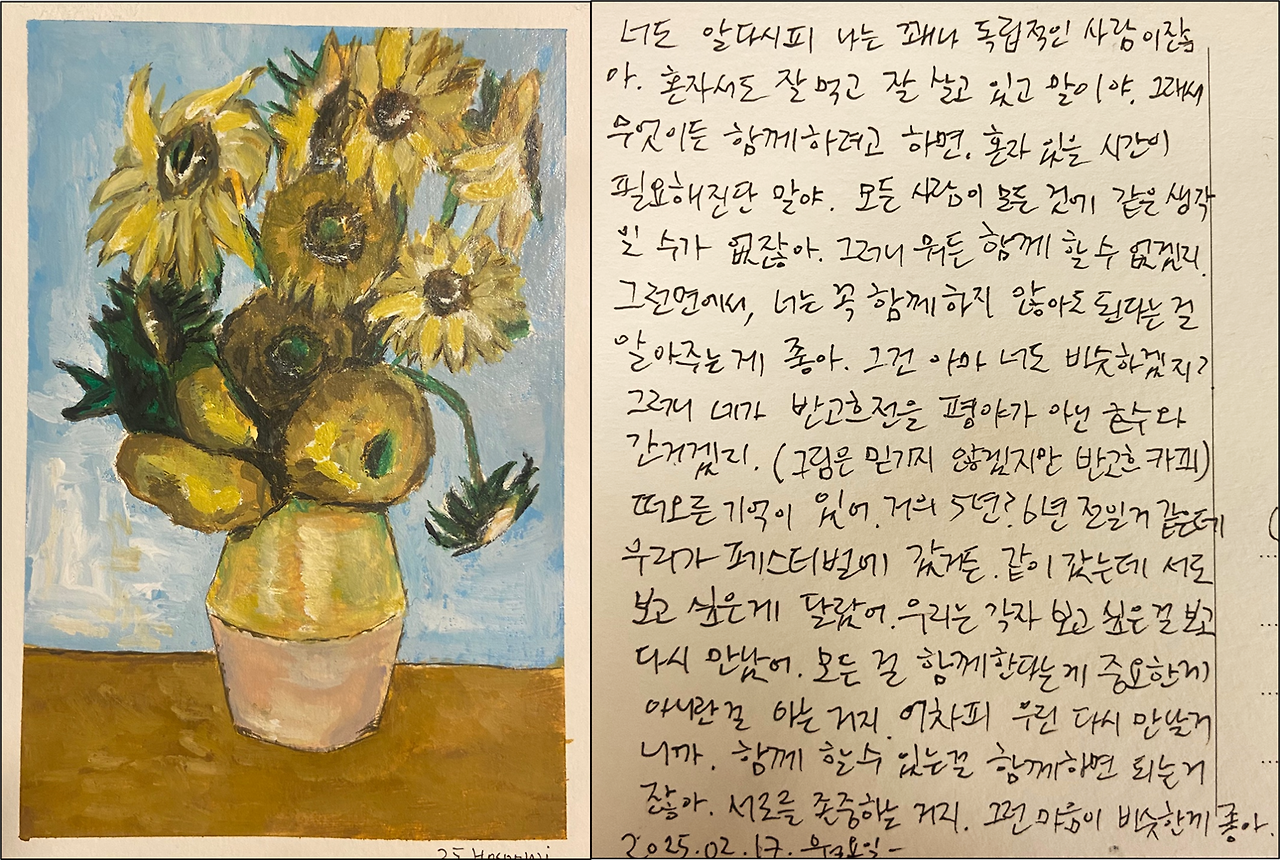 너도 알다시피 나는 꽤나 독립적인 사람이잖
아. 혼자서도 잘 먹고 잘 살고 있고 말이야. 그래서
무엇이든 함께하려고 하면, 혼자 있을 시간이
필요해진단 말야. 모든 사람이 모든 것에 같은 생각
일 수가 없잖아. 그러니 뭐든 함께 할 수 없겠지.
그런면에서, 너는 꼭 함께 하지 않아도 된다는 걸
알아주는게 좋아. 그건 아마 너도 비슷하겠지?
그러니 네가 반고흐전을 평야가 아닌 호수와
간거겠지. (그림은 믿기지 않겠지만 반고흐 카피)
떠오른 기억이 있어. 거의 5년? 6년 전일거 같은데
우리가 페스티벌에 갔거든. 같이 갔는데 서로
보고 싶은게 달랐어. 우리는 각자 보고 싶은걸 보고
다시 만났어. 모든 걸 함께한다는게 중요한게
아니란걸 아는 거지. 어차피 우린 다시 만날거
니까. 함께 할 수 있는걸 함께하면 되는거
잖아. 서로를 존중하는 거지. 그런 마음이 비슷한게 좋아.
2025.02.17. 월요일-
25